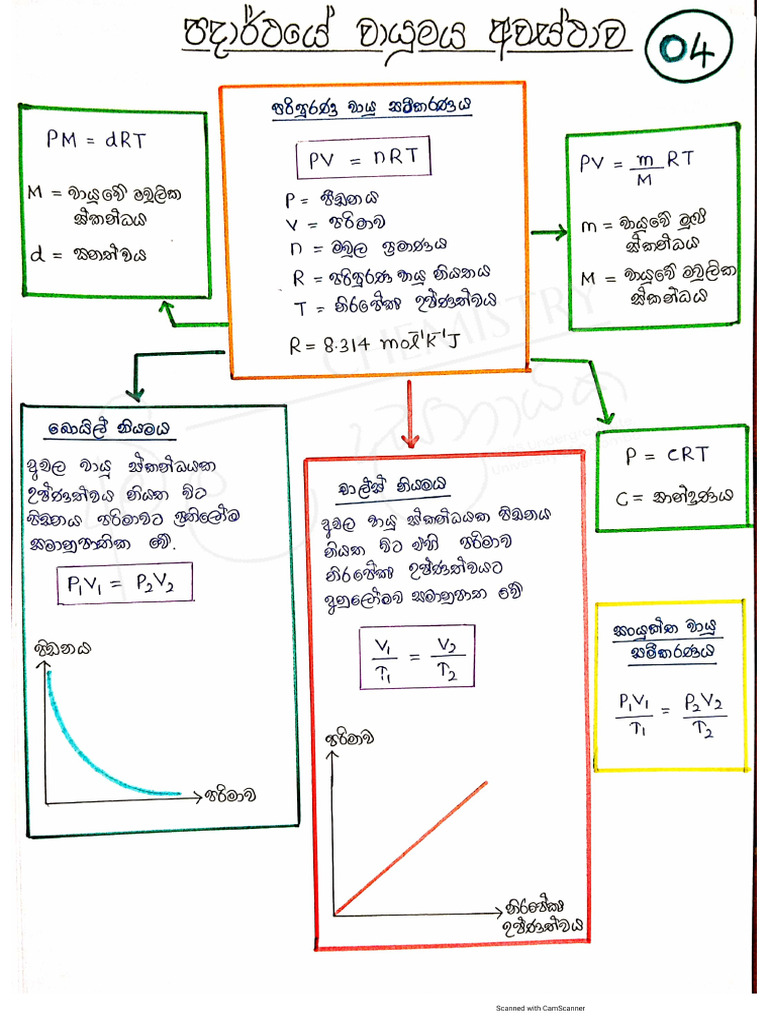 පදාර්ථයේ වායුමය අවස්ථාව
04
පරිපූර්ණ වායු සමීකරණය
PV = nRT
P = පීඩනය
V = පරිමාව
n = මවුල ප්‍රමාණය
R = පරිපූර්ණ වායු නියතය
T = නිරපේක්ෂ උෂ්ණත්වය
R = 8.314 mol⁻¹K⁻¹J
PM = dRT
M = වායුවේ මවුලික
ස්කන්ධය
d = ඝනත්වය
PV = m/M RT
m = වායුවේ මුළු
ස්කන්ධය
M = වායුවේ මවුලික
ස්කන්ධය
බොයිල් නියමය
අචල වායු ස්කන්ධයක
උෂ්ණත්වය නියත විට
පීඩනය පරිමාවට ප්‍රතිලෝම
සමානුපාතික වේ.
P₁V₁ = P₂V₂
පීඩනය
පරිමාව
චාල්ස් නියමය
අචල වායු ස්කන්ධයක පීඩනය
නියත විට එහි පරිමාව
නිරපේක්ෂ උෂ්ණත්වයට
අනුලෝමව සමානුපාත වේ
V₁/T₁ = V₂/T₂
පරිමාව
නිරපේක්ෂ
උෂ්ණත්වය
P = CRT
C = සාන්ද්‍රණය
සංයුක්ත වායු
සමීකරණය
P₁V₁/T₁ = P₂V₂/T₂
CHEMISTRY
Scanned with CamScanner